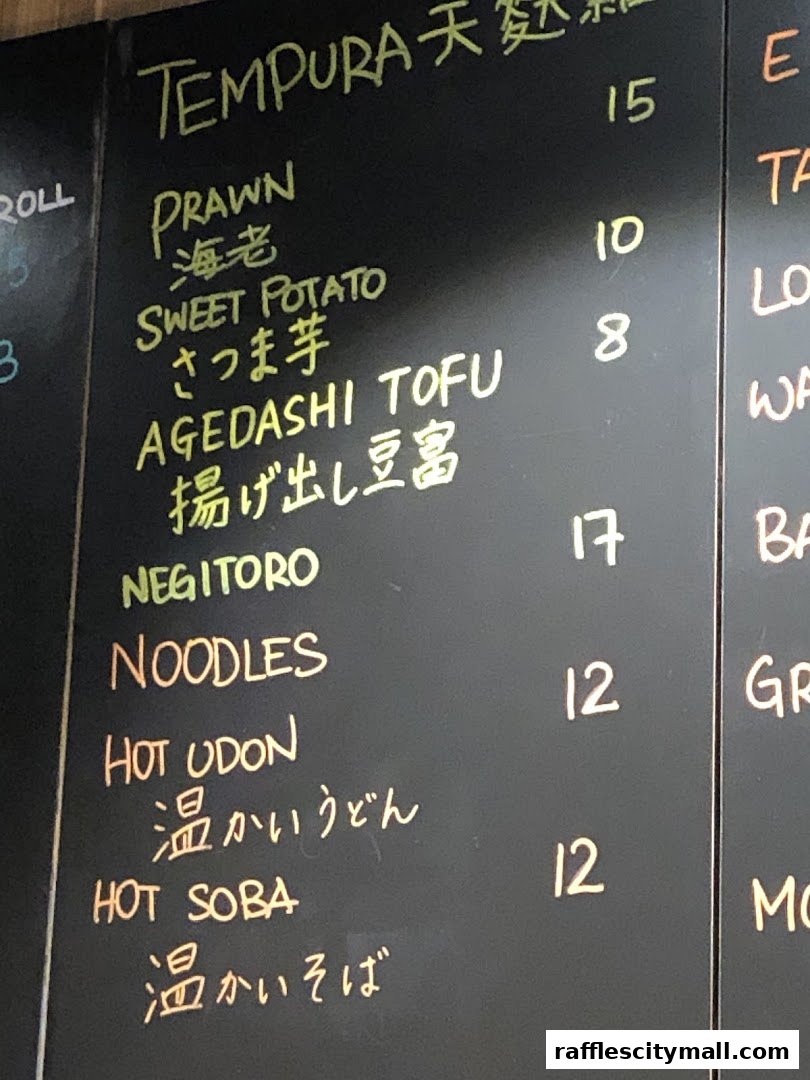 TEMPURA 天麩羅
15
PRAWN
海老
10
SWEET POTATO
さつま芋
8
AGEDASHI TOFU
揚げ出し豆富
NEGITORO
17
NOODLES
12
HOT UDON
温かいうどん
12
HOT SOBA
温かいそば
ROLL
5
3
E
TA
LO
WA
BA
GR
MO
rafflescitymall.com